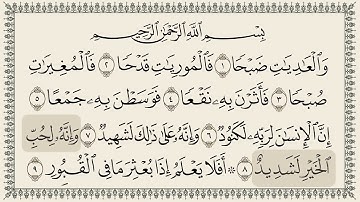 بِسْمِ اللَّهِ الرَّحْمَٰنِ الرَّحِيمِ
وَٱلْعَٰدِيَٰتِ ضَبْحًا ١ فَٱلْمُورِيَٰتِ قَدْحًا ٢ فَٱلْمُغِيرَٰتِ
صُبْحًا ٣ فَأَثَرْنَ بِهِۦ نَقْعًا ٤ فَوَسَطْنَ بِهِۦ جَمْعًا ٥
إِنَّ ٱلْإِنسَٰنَ لِرَبِّهِۦ لَكَنُودٌ ٦ وَإِنَّهُۥ عَلَىٰ ذَٰلِكَ لَشَهِيدٌ ٧ وَإِنَّهُۥ لِحُبِّ
ٱلْخَيْرِ لَشَدِيدٌ ٨ ۞ أَفَلَا يَعْلَمُ إِذَا بُعْثِرَ مَا فِى ٱلْقُبُورِ ٩